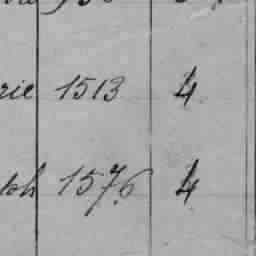 rie 1513 4
ph 1576 4